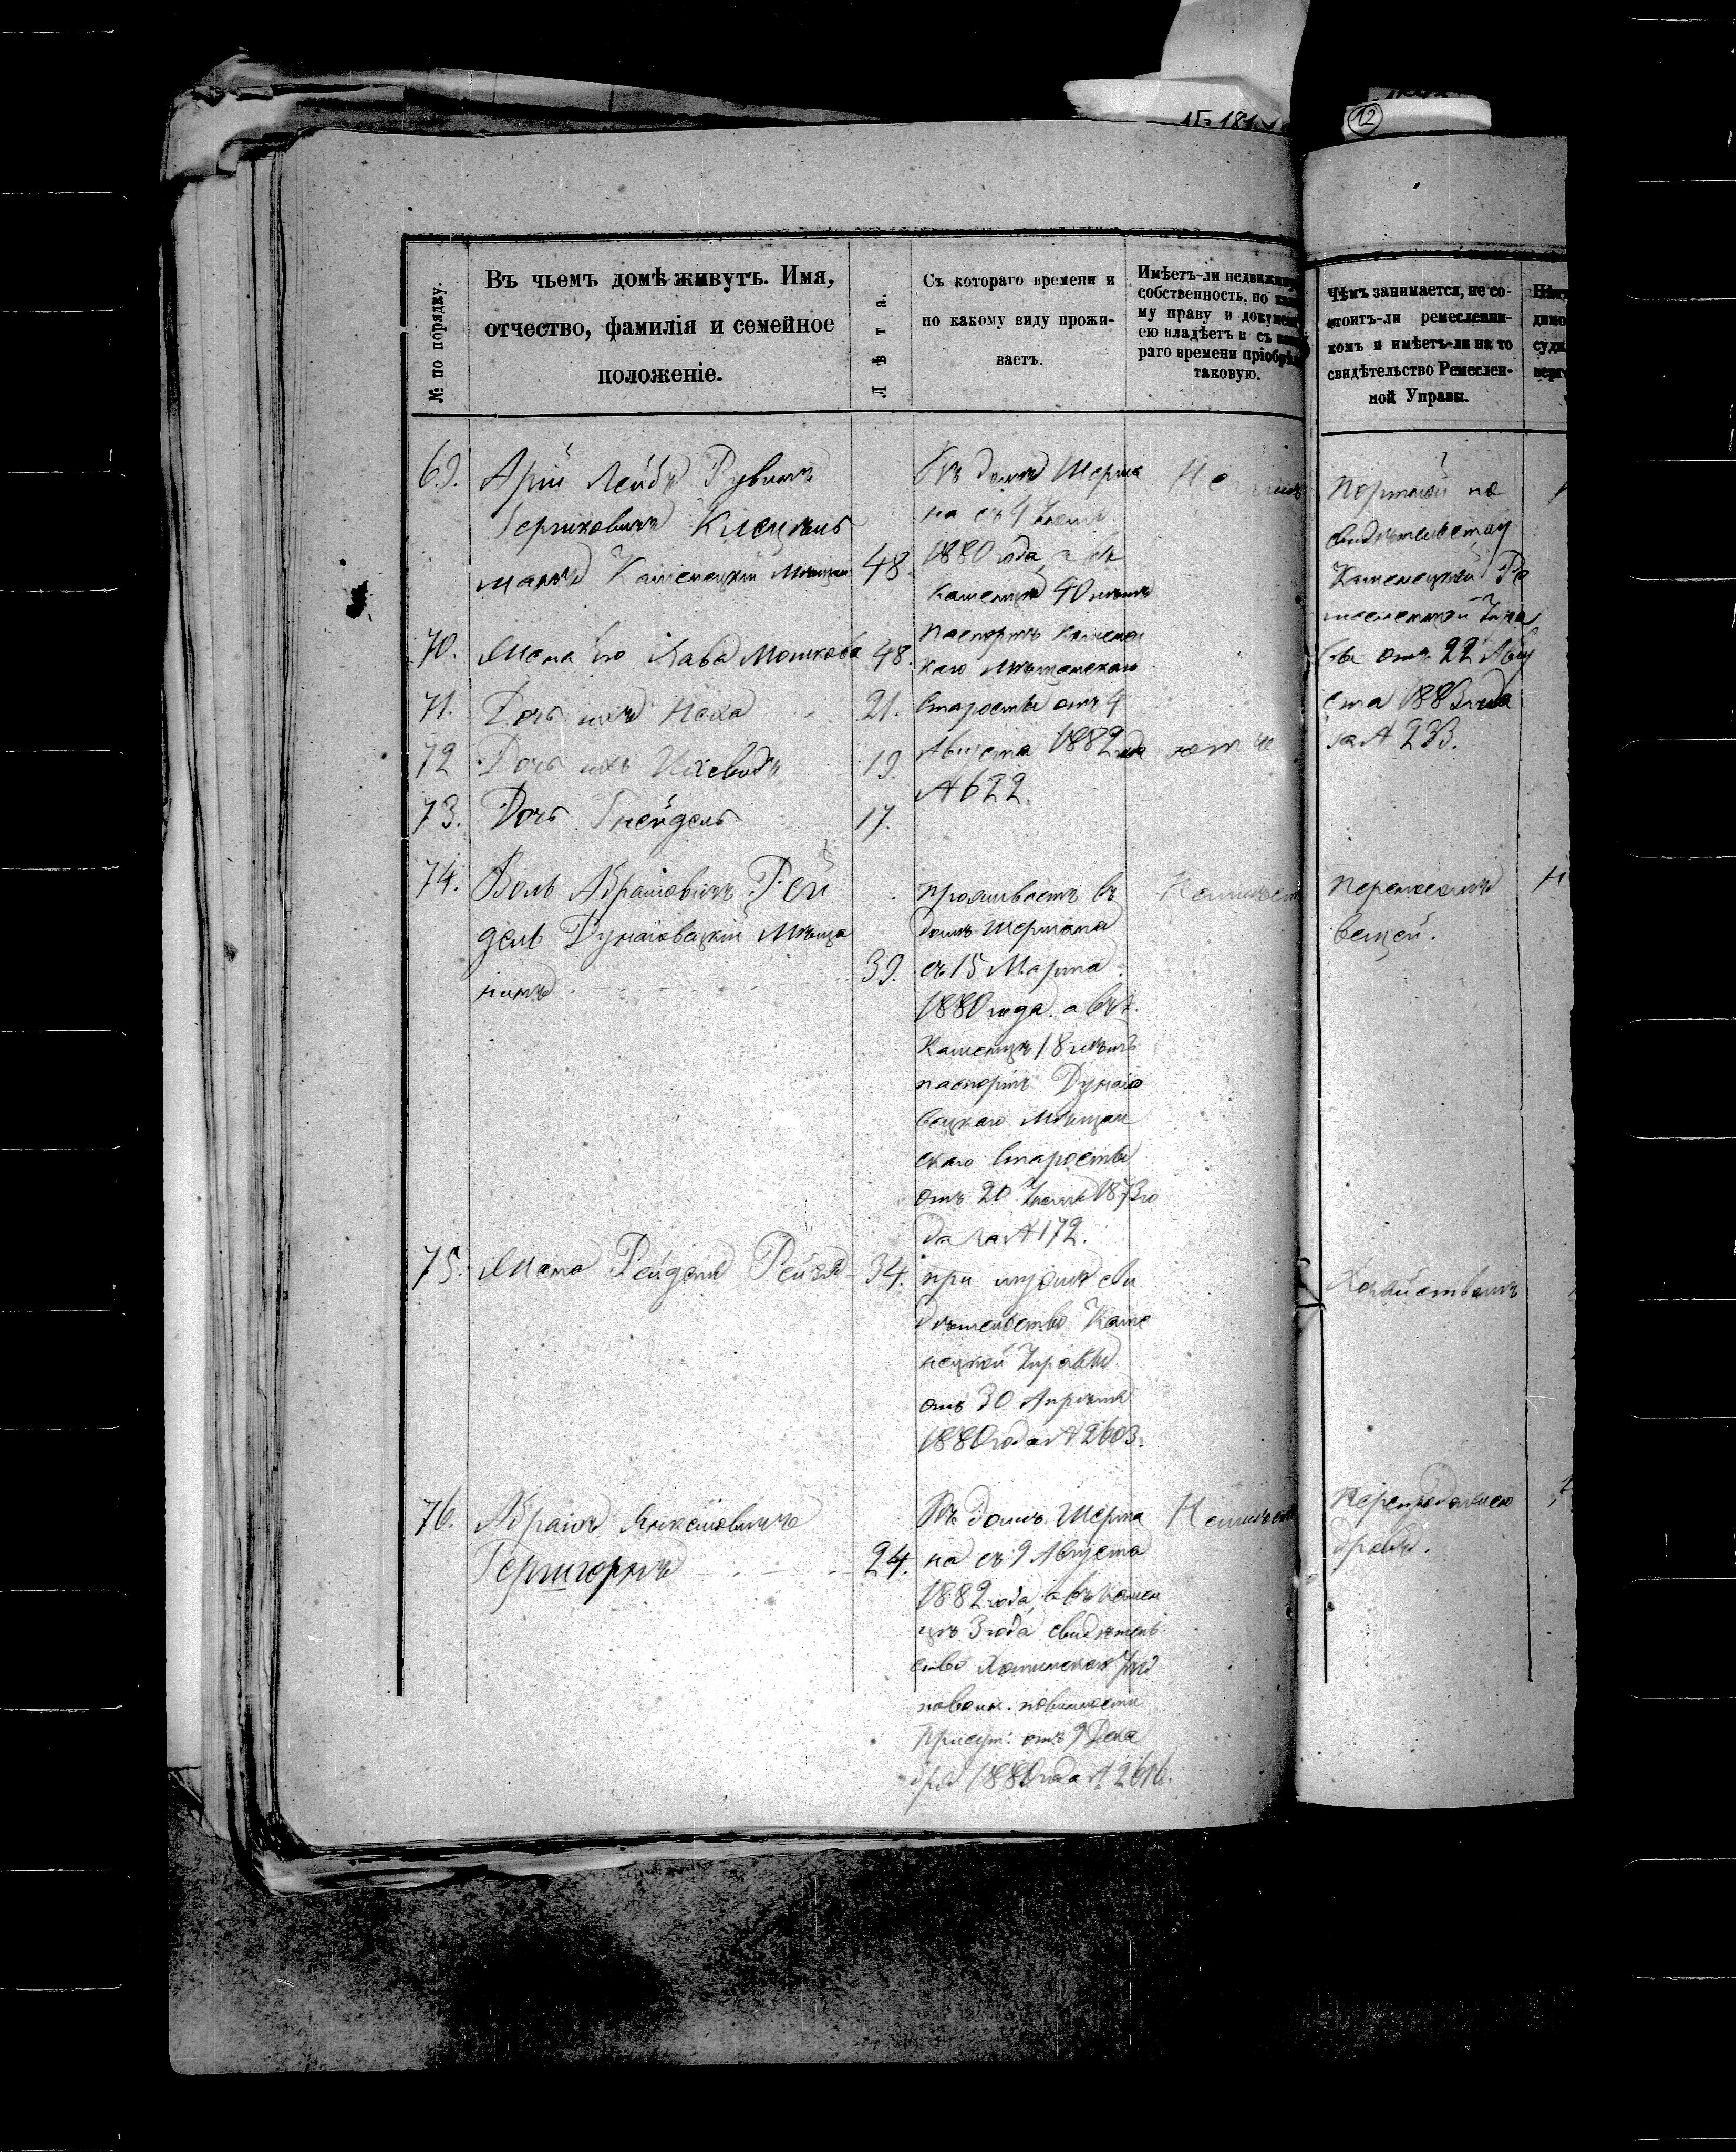 12
№ по порядку.
Въ чьемъ домѣ живутъ. Имя,
отчество, фамилія и семейное
положеніе.
Лѣта.
Съ котораго времени и
по какому виду прожи-
ваетъ.
Имѣетъ-ли недвижи
собственность, по
му праву и докумен
ею владѣетъ и съ
раго времени пріобрѣ
таковую.
Чѣмъ занимается, не со-
стоитъ-ли ремесленни-
комъ и имѣетъ-ли на то
свидѣтельство Ремеслен-
ной Управы.
69.
Арій Лейбъ Рувинъ
Гершковичъ
Каменецкій Мѣщан
48.
Въ домѣ Шерма
на съ 4
1880 года, а въ
Каменцѣ 40 лѣтъ
паспортъ Каменец
каго Мѣщанскаго
Старосты отъ 4
Августа 1882 года
№ 622.
Портной по
свидѣтельству
Каменецкой Ре
месленной Упра
вы отъ 22 Авгу
ста 1883 года
за № 233.
70.
Жена его Хава Мошкова
48.
71.
Дочь ихъ Неха
21.
72
Дочь ихъ
19.
73.
Дочь Гнейдель
17.
74.
Воль Абрамовичъ Рей
дель Дунаіовецкій Мѣща
нинъ
39.
проживаетъ въ
домѣ Шермана
съ 15 Марта
1880 года, а въ
Каменцѣ 18 лѣтъ
паспортъ Дунаіо
вецкаго Мѣщан
скаго Старосты
отъ 20 1873 го
да за № 172.
Неимѣет
вещей.
75.
Жена Рейдель Рейзя
34.
при мужѣ сви
дѣтельство Каме
нецкой Управы
отъ 30 Апрѣля
1880 года № 2603.
Хозяйствомъ
76.
Абрамъ Янкеловичъ
Гершгорнъ
24.
Въ домѣ Шерма
на съ 9 Августа
1882 года, а въ Камен
цѣ 3 года свидѣтель
ство Хотинскаго
по воин. повинности
Присут: отъ 9 Дека
бря 1880 года № 2616.
Неимѣет
Перепродажею
дровъ.